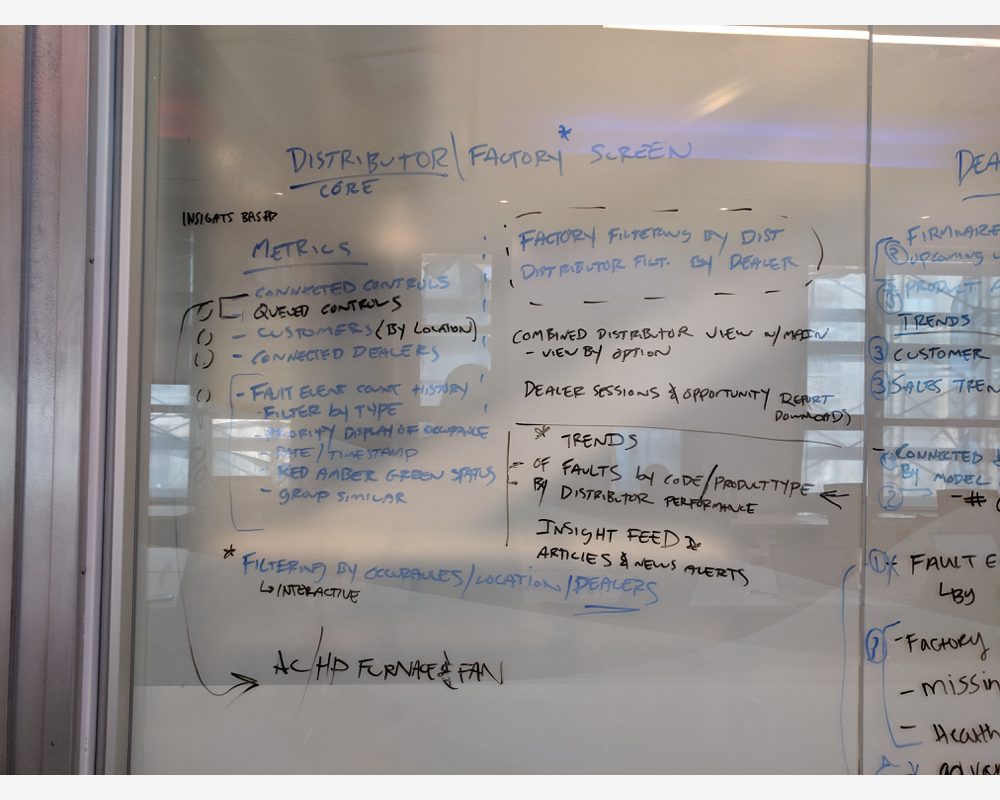 DISTRIBUTOR/FACTORY* SCREEN
CORE
INSIGHTS BASED
METRICS
CONNECTED CONTROLS
QUEUED CONTROLS
() - CUSTOMERS (BY LOCATION)
() - CONNECTED DEALERS
() - FAULT EVENT COUNT HISTORY
- FILTER BY TYPE
- PRIORITY DISPLAY OF OCCURANCE
- DATE/TIMESTAMP
- RED AMBER GREEN STATUS
- GROUP SIMILAR
* FILTERING BY OCCURANCES/LOCATION/DEALERS
↳ INTERACTIVE
AC/HP FURNACE & FAN
FACTORY FILTERING BY DIST
DISTRIBUTOR FILT. BY DEALER
COMBINED DISTRIBUTOR VIEW W/MAIN
- VIEW BY OPTION
DEALER SESSIONS & OPPORTUNITY REPORT
DOWNLOADS
* TRENDS
- OF FAULTS BY CODE/PRODUCT TYPE
- BY DISTRIBUTOR PERFORMANCE
INSIGHT FEED
ARTICLES & NEWS ALERTS
DEA
FIRMWARE
② UPCOMING
PRODUCT
TRENDS
③ CUSTOMER
③ SALES TREN
- CONNECTED
BY MODEL
② - #
① * FAULT E
↳ BY
- FACTORY
- MISSIN
-